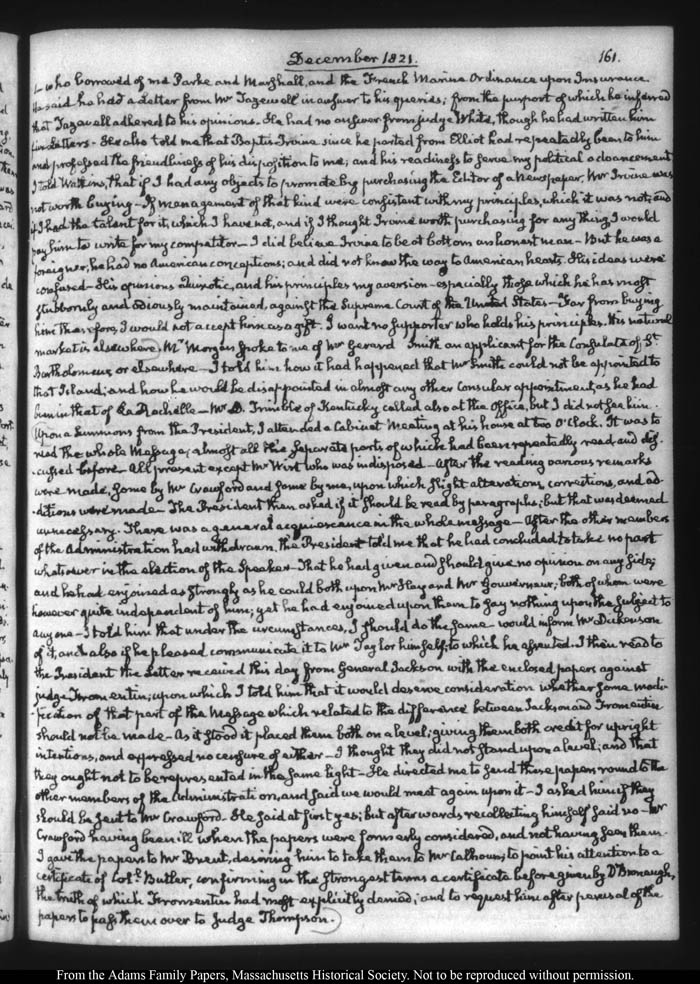 December 1821. 161.
who borrowed of me Parke and Marshall, and the French Marine Ordinance upon Insurance.
He said he had a Letter from Mr Tazewell in answer to his queries; from the purport of which he inferred
that Tazewell adhered to his opinions. He had no answer from Judge White, though he had written him
Letters. He also told me that Baptis Irvine since he parted from Elliot had repeatedly been to him
and professed the friendliness of his disposition to me; and his readiness to serve my political advancement
I told Watkins, that if I had any objects to promote by purchasing the Editor of a Newspaper, Mr Irvine was
not worth buying—If management of that kind were consistent with my principles, which it was not, and
if I had the talent for it, which I have not, and if I thought Irvine worth purchasing for any thing, I would
pay him to write for my competitor—I did believe Irvine to be at bottom an honest man—But he was a
foreigner, he had no American conceptions; and did not know the way to American hearts. His ideas were
confused—His opinions Quixotic, and his principles my aversion—especially those which he has most
stubbornly and odiously maintained, against the Supreme Court of the United States—Far from buying
him therefore, I would not accept him as a gift. I want no supporter who holds his principles. His natural
market is elsewhere. Mr Morgan spoke to me of Mr Gerard Smith an applicant for the Consulate of St
Bartholomews, or elsewhere—I told him how it had happened that Mr Smith could not be appointed to
that Island; and how he would be disappointed in almost any other Consular appointment, as he had
been in that of La Rochelle—Mr D. Trimble of Kentucky called also at the Office, but I did not see him.
Upon a Summons from the President, I attended a Cabinet Meeting at his house at two O'Clock. It was to
read the whole Message; almost all the separate parts of which had been repeatedly read, and dis-
-cussed before—All present except Mr Wirt who was indisposed—After the reading various remarks
were made, some by Mr Crawford and some by me, upon which slight alterations, corrections, and ad-
-ditions were made—The President then asked if it should be read by paragraphs; but that was deemed
unnecessary. There was a general acquiescence in the whole message—After the other members
of the Administration had withdrawn, the President told me that he had concluded to take no part
whatever in the election of the Speaker—That he had given and should give no opinion on any side;
and he had enjoined as strongly as he could both upon Mr Hay and Mr Gouverneur, both of whom were
however quite independent of him; yet he had enjoined upon them to say nothing upon the subject to
any one—I told him that under the circumstances, I should do the same—would inform Mr Dickenson
of it, and also if he pleased communicate it to Mr Taylor himself; to which he assented. I then read to
the President the Letter received this day from General Jackson with the enclosed papers against
judge Fromentin; upon which I told him that it would deserve consideration whether some modi-
-fication of that part of the Message which related to the difference between Jackson and Fromentin
should not be made—As it stood it placed them both on a level; giving them both credit for upright
intentions, and expressed no censure of either—I thought they did not stand upon a level; and that
they ought not to be represented in the same light—He directed me to send these papers round to the
other members of the Administration, and said we would meet again upon it—I asked him if they
should be sent to Mr Crawford. He said at first yes; but afterwards recollecting himself said no—Mr
Crawford having been ill when the papers were formerly considered, and not having seen them.
I gave the papers to Mr Brent, desiring him to take them to Mr Calhoun; to point his attention to a
certificate of Coll. Butler, confirming in the strongest terms a certificate before given by Dr Bronaugh,
the truth of which Fromentin had most explicitly denied; and to request him after perusal of the
papers to pass them over to Judge Thompson.
From the Adams Family Papers, Massachusetts Historical Society. Not to be reproduced without permission.